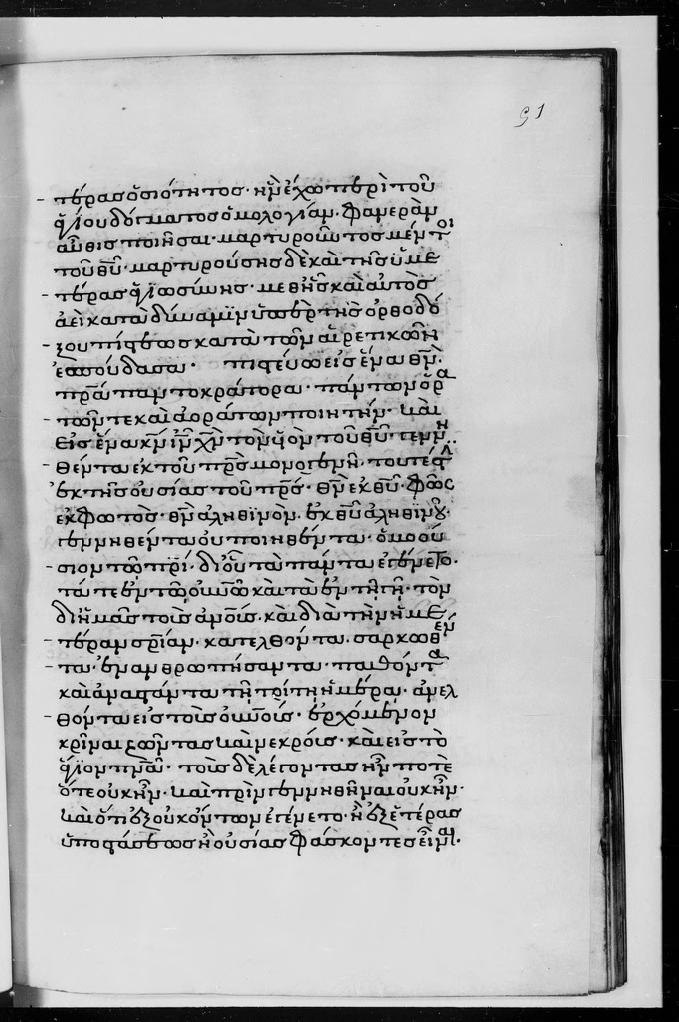 91
τέρας ὁσιότητος· ἣν ἔχω περὶ τοῦ
θείου δόγματος ὁμολογίαν. φανερὰν
αὖθις ποιῆσαι· μαρτυροῦντος μέντοι
τοῦ θῦ· μαρτυρούσης δὲ καὶ τῆς ὑμε
τέρας θειωσύνης. μεθ' ἧς καὶ αὐτὸς
ἀεὶ κατὰ δύναμϊν ὑπὲρ τῆς ὀρθοδό
ξου πίστεως κατὰ τῶν αἱρετικῶν
ἐσπούδασα· πιστεύω εἰς ἕνα θν̄.
πρ̄α παντοκράτορα· πάντων ὁρα
τῶν τε καὶ ἀοράτων ποιητήν· καὶ
εἰς ἕνα κν̄ ιν̄ χν̄ τὸν υἱὸν τοῦ θῦ· γεννη
θέντα ἐκ τοῦ πρ̄ς μονογενῆ· τουτέστ
ἐκ τῆς οὐσίας τοῦ πρ̄ς· θν̄ ἐκ θῦ· φῶς
ἐκ φωτός· θν̄ ἀληθϊνὸν. ἐκ θῦ ἀληθϊνοῦ·
γεννηθέντα οὐ ποιηθέντα· ὁμοού
σιον τῷ πρι̅· δι' οὗ τὰ πάντα ἐγένετο·
τά τε ἐν τῷ οὐνῶ καὶ τὰ ἐν τῇ γῇ· τὸν
δι' ἡμᾶς τοὺς ἀνους. καὶ διὰ τὴν ἡμε
τέραν σρ̄ίαν. κατελθόντα. σαρκωθέν
τα· ἐνανθρωπήσαντα· παθόντα
καὶ ἀναστάντα τῇ τρίτῃ ἡμέρᾳ· ἀνελ
θόντα εἰς τοὺς οὐνούς. ἐρχόμενον
κρῖναι ζῶντας καὶ νεκρούς· καὶ εἰς τὸ
ἅγιον πνᾶ· τοὺς δὲ λέγοντας ἦν ποτὲ
ὅτε οὐκ ἦν· καὶ πρὶν γεννηθῆναι οὐκ ἦν·
καὶ ὅτι ἐξ οὐκ ὄντων ἐγένετο· ἢ ἐξ ἑτέρας
ὑποστάσεως ἢ οὐσίας φάσκοντες εἶναι·